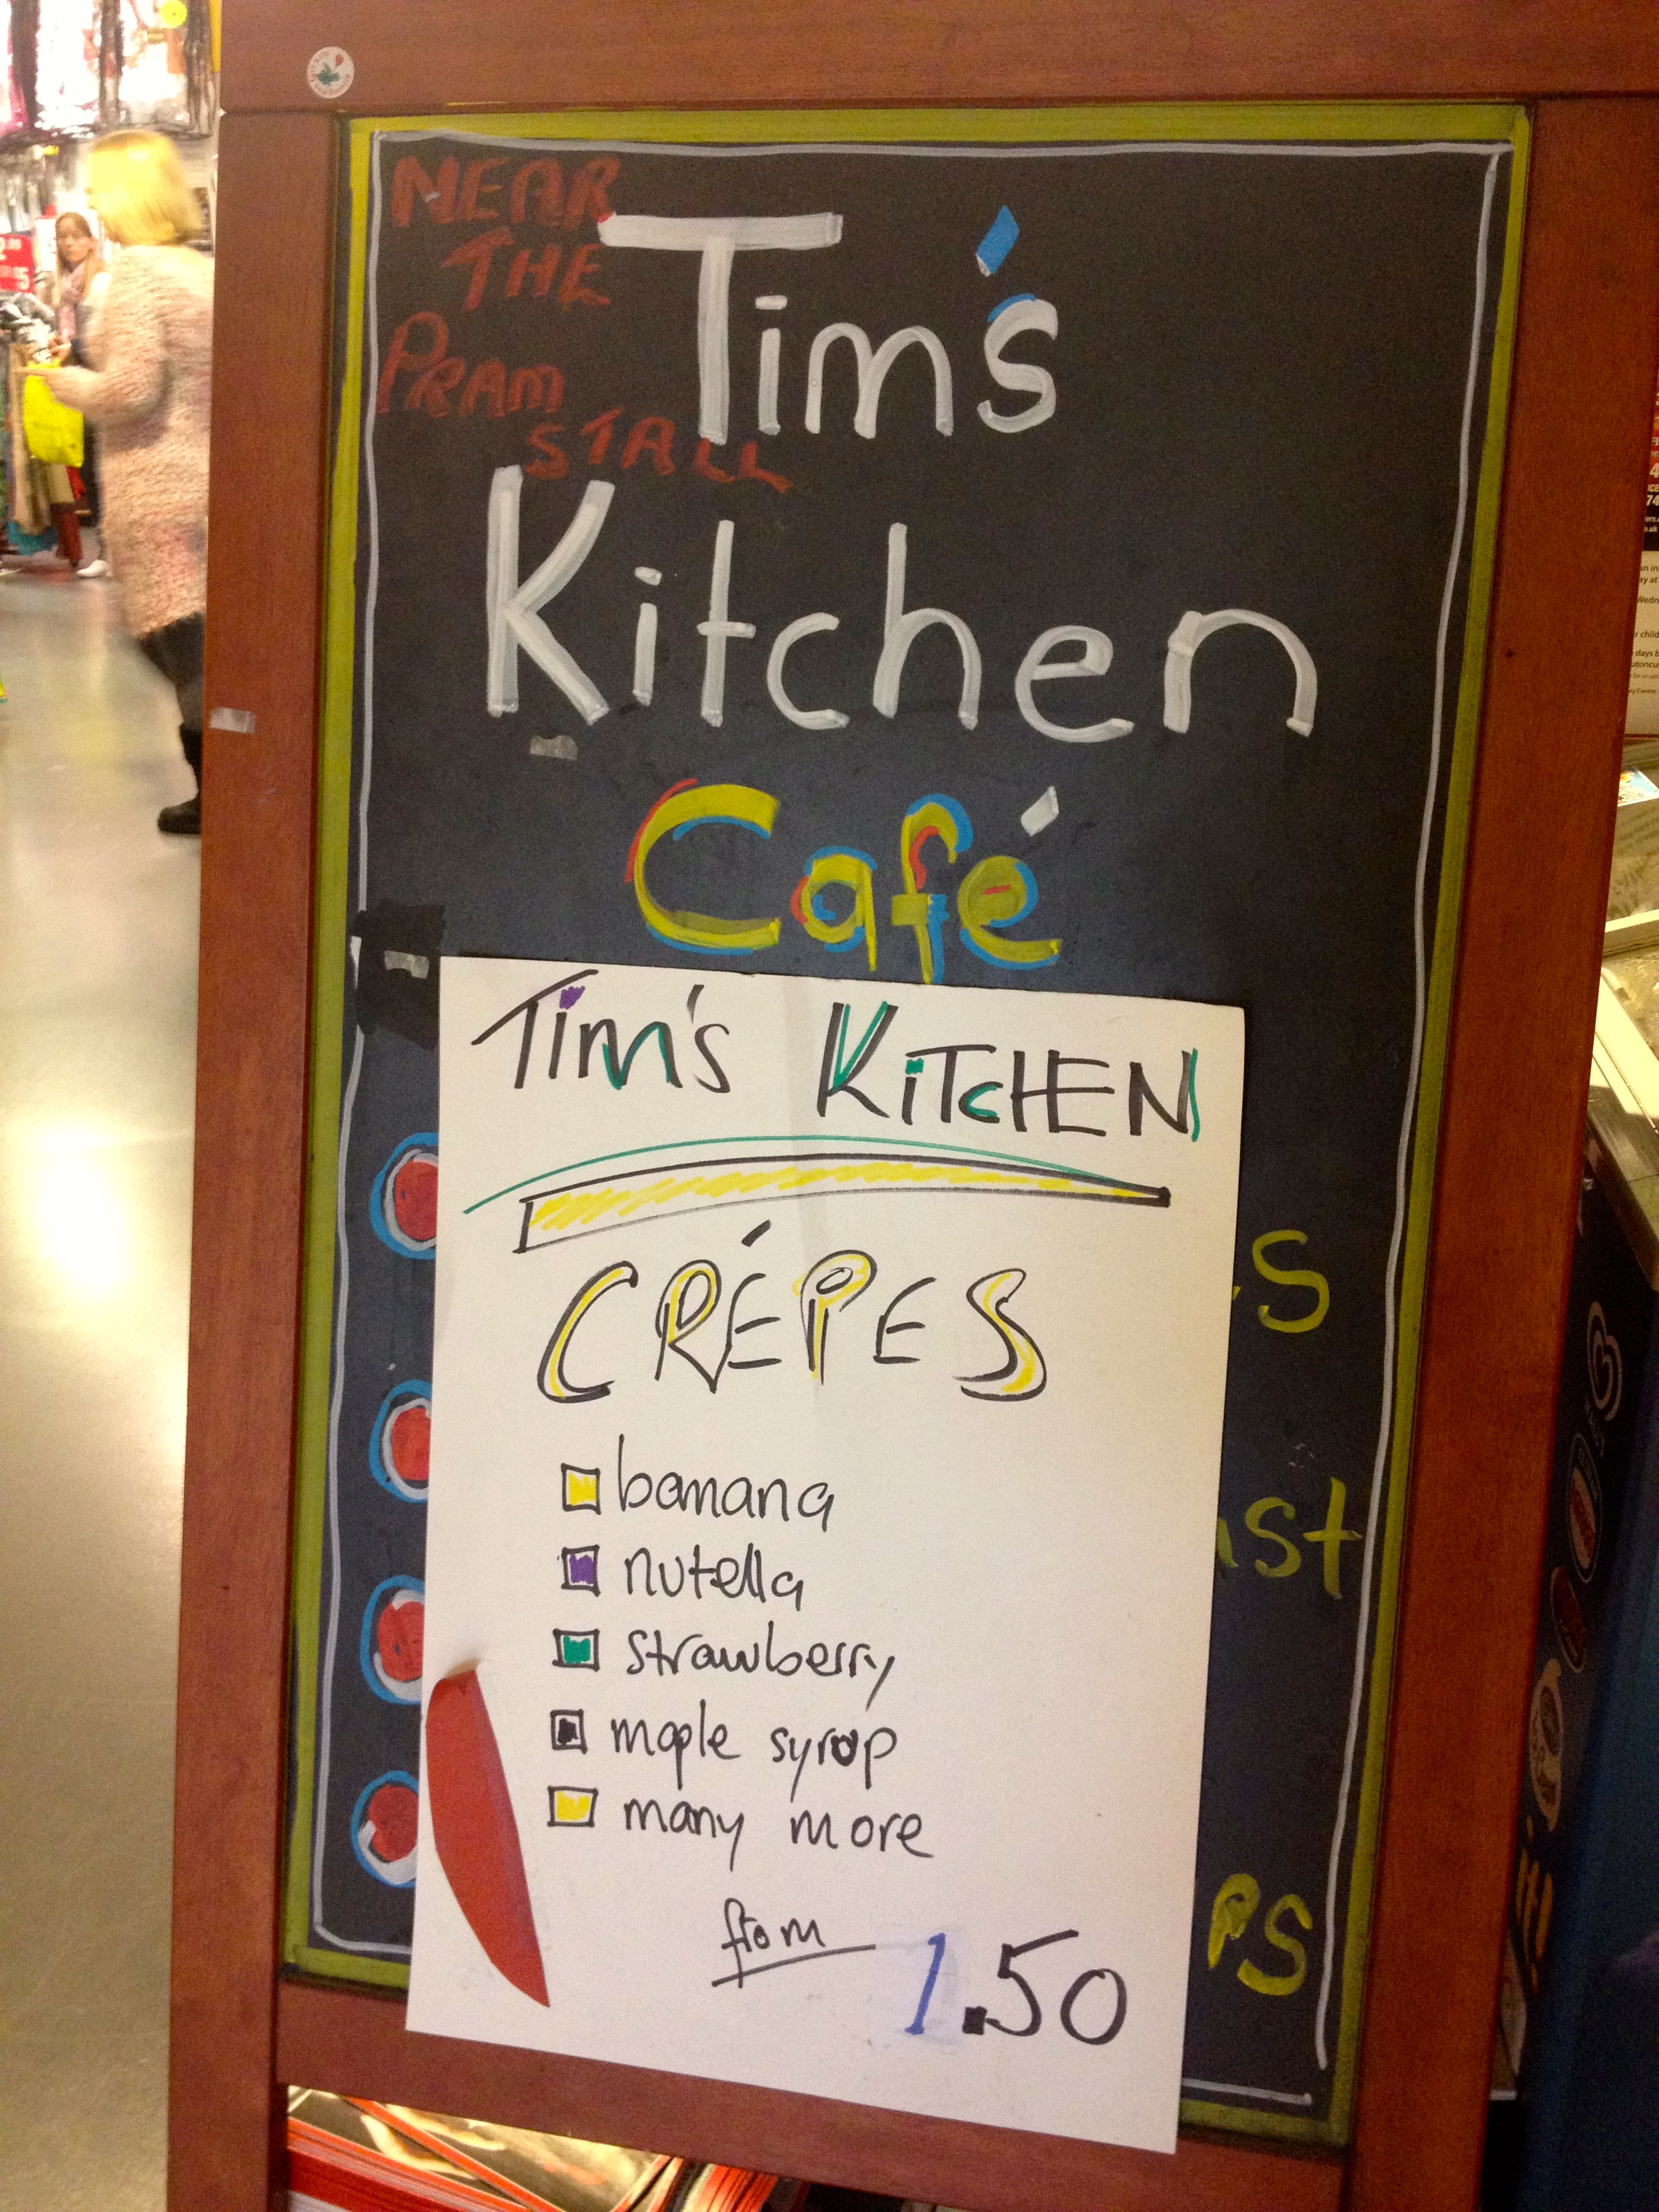 NEAR
THE
PRAM
STALL
Tim's
Kitchen
Café
Tim's KiTCHEN
CRÉPES
banana
nutella
strawberry
maple syrop
many more
from 1.50
s
st
PS